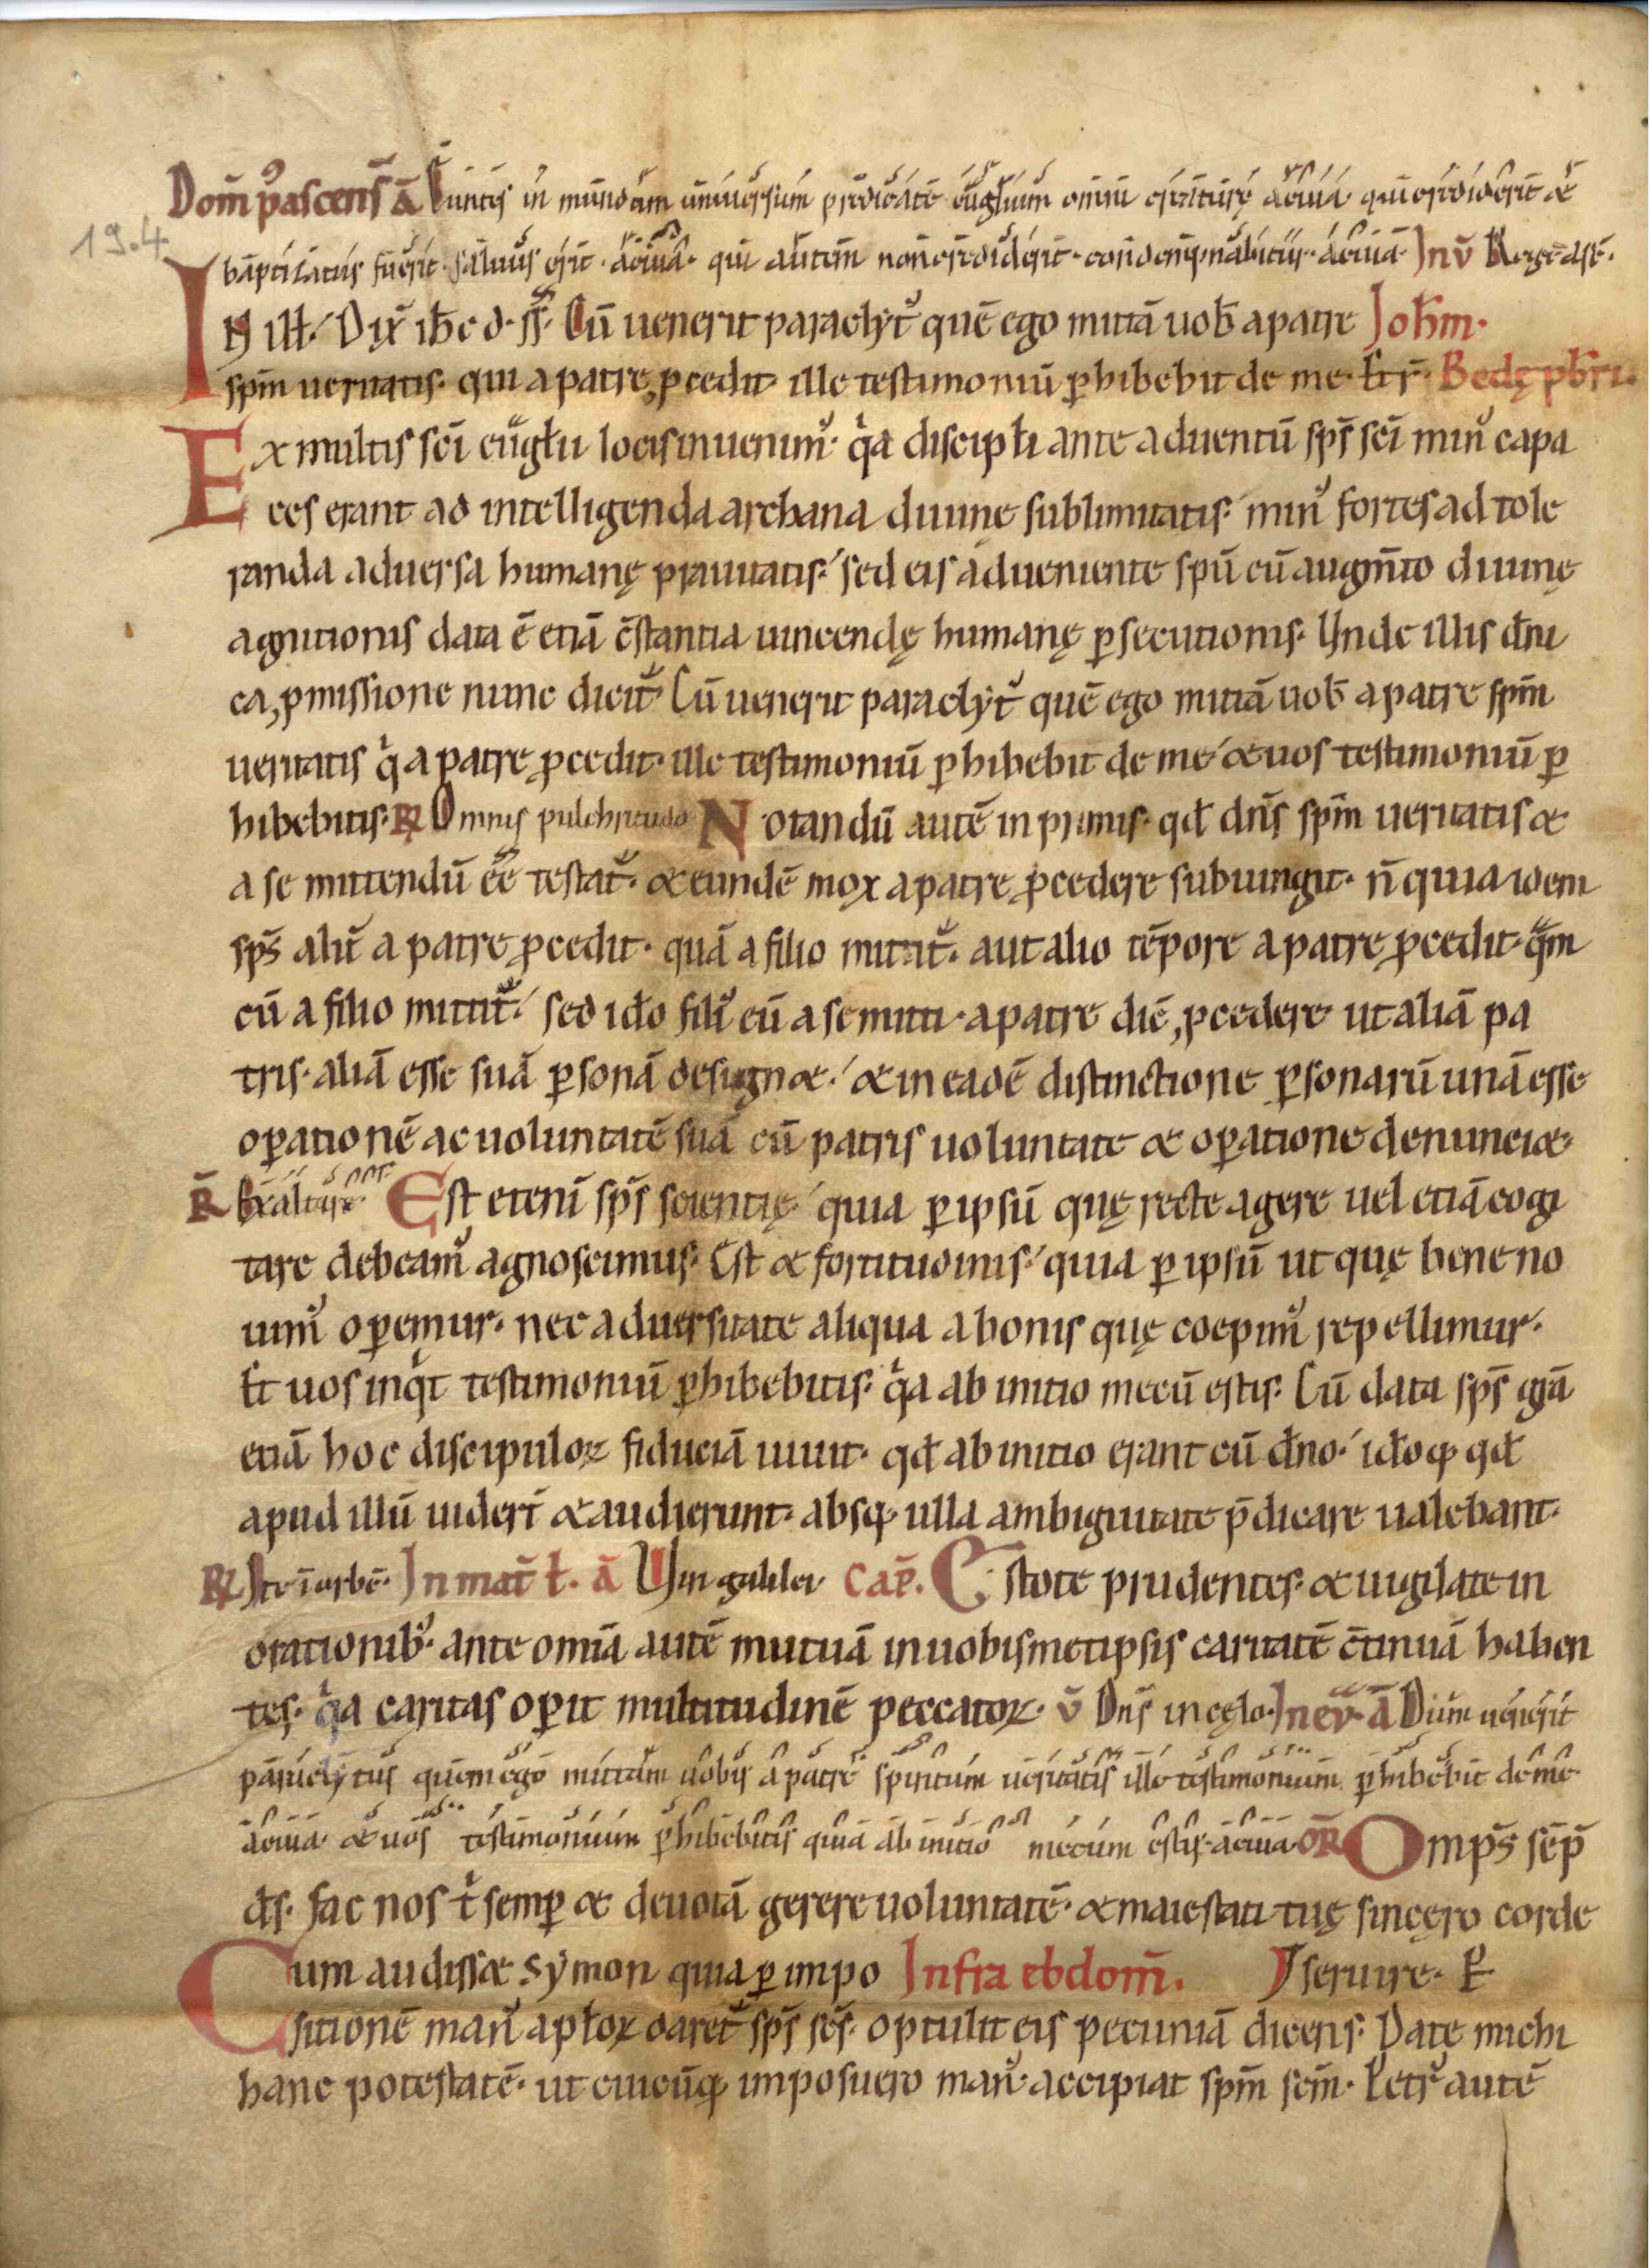 Dom̄ p᷒ ascens̄ ā Euntes in mundum uniuersum predicate euḡlium omni creaturę aeuia qui crediderit &
19.4.
baptizatus fuerit saluus erit aeuia qui autem non crediderit condempnabitur aeuia Inv̄
IN ill̄ Dix̄ ih̄c d. ss̄. Cū uenerit paraclyt᷒ quē ego mittā uob̄ a patre Joh̄m.
sp̄m ueritatis. qui a patre ꝓcedit. ille testimoniū ꝑhibebit de me. Et r̄. Bedę pb̄ri.
Ex multis sc̄i euḡlii locis inuenim᷒. qͥa discipl̄i ante aduentū sp̄s sc̄i min᷒ capa
ces erant ad intelligenda archana diuinę sublimitatis. min᷒ fortes ad tole
randa aduersa humanę prauitatis. sed eis adueniente sp̄u cū augm̄to diuinę
agnitionis data ē etiā c̄stantia uincendę humanę ꝑsecutionis. Unde illis dn̄i
ca ꝓmissione nunc dicit᷒. Cū uenerit paraclyt᷒ quē ego mittā uob̄ a patre sp̄m
ueritatis qͥ a patre ꝓcedit. ille testimoniū ꝑhibebit de me. & uos testimoniū ꝑ
hibebitis. ℟ Omnis pulchritudo Notandū autē in primis. qd̄ dn̄s sp̄m ueritatis &
a se mittendū ēē testat᷒. & eundē mox a patre ꝓcedere subiungit. n̄ quia idem
sp̄s alit̄ a patre ꝓcedit. quā a filio mittit᷒. aut alio tēpore a patre ꝓcedit. qͣm
cū a filio mittit᷒. sed ido filī᷒ eū a se mitti. a patre dic̄ ꝓcedere ut aliā pa
tris. aliā esse suā ꝑsonā design&. & in eadē distinctione ꝑsonarū unā esse
oꝑationē ac uoluntatē suā cū patris uoluntate & oꝑatione denunci&.
℟ Exaltare. Est etenī sp̄s scientię. quia ꝑ ipsū quę recte agere uel etiā cogi
tare debeam᷒ agnoscimus. Est & fortitudinis. quia ꝑ ipsū ut quę bene no
uim᷒ oꝑemur. nec aduersitate aliqua a bonis quę coepim᷒ repellimur.
Et uos inqͥt testimoniū ꝑhibebitis. qͥa ab initio mecū estis. Cū data sp̄s gr̄ā
etiā hoc discipuloꝝ fiduciā iuuit. qd̄ ab initio erant cū dn̄o. idoq; qd̄
apud illū uiderī & audierunt. absq; ulla ambiguitate p̄dicare ualebant.
℟ Ite ī orbē. In mat̄ l̄. ā Viri galilei Cap̄. Estote prudentes. & uigilate in
orationib᷒. ante omīa autē mutuā in uobismetipsis caritatē c̄tinuā haben
tes. qͥa caritas oꝑit multitudinē peccatoꝝ. v̄ Dn̄s in cęlo. In ev̄. ā Dum uenerit
paraclytus quem ego mittam uobis a patre spiritum ueritatis ille testimonium ꝑhibebit de me
aeuia. & uos testimonium ꝑhibebitis quia ab initio mecum estis. aeuia OR̄ Omps̄ sēp̄
ds̄. fac nos t̄ semꝑ & deuotā gerere uoluntatē. & maiestati tuę sincęro corde
Cum audiss& symon quia ꝑ impo Infra ebdom̄. seruire. P̄
sitionē man᷒ apl̄oꝝ daret᷒ sp̄s sc̄s. optulit eis pecuniā dicens. Date michi
hanc potestatē. ut cuicūq; imposuero man᷒. accipiat sp̄m sc̄m. Petr᷒ autē